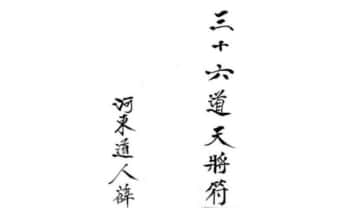 三十六道天將符
河東道人薛